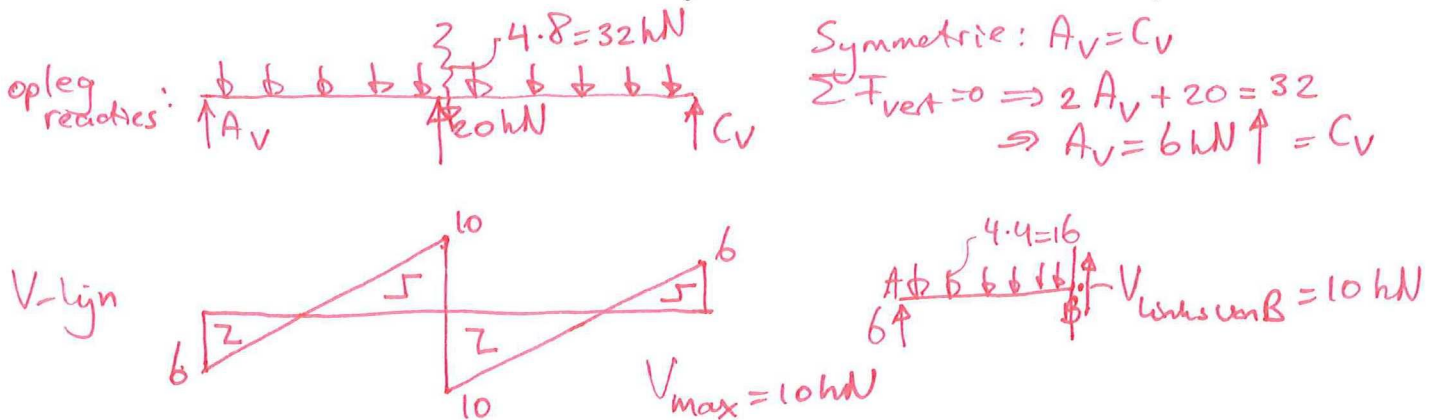 opleg
reacties:
4·8=32kN
A_V
20kN
C_V
Symmetrie: A_V = C_V
ΣF_vert=0 ⇒ 2 A_V + 20 = 32
⇒ A_V = 6 kN ↑ = C_V
V-lijn
6
10
10
6
V_max = 10kN
4·4=16
A
6
B
V_links van B = 10 kN